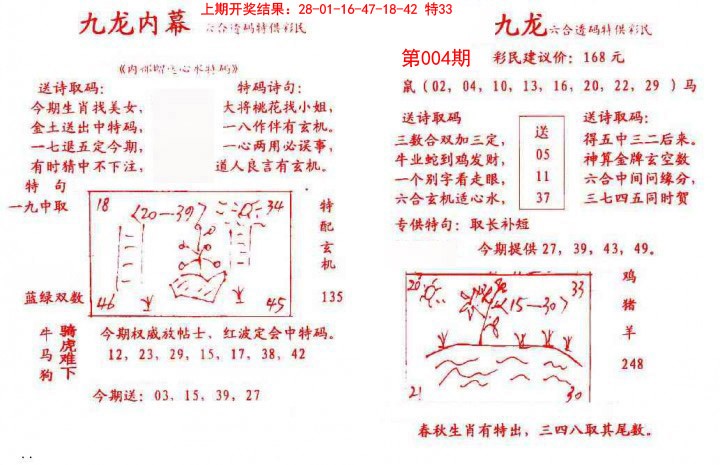 上期开奖结果：28-01-16-47-18-42 特33
九龙内幕 六合透码特供彩民
送诗取码：
今期生肖找美女，
金土送出中特码，
一七退五定今期，
有时猜中不下注，
特码诗句：
大将桃花找小姐，
一八作伴有玄机。
一心两用必误事，
道人良言有玄机。
特 句
一九中取
蓝绿双数
18
(20—39)
34
46
45
特配玄机
135
牛马狗
骑虎难下
今期权威放帖士，红波定会中特码。
12，23，29，15，17，38，42
今期送：03，15，39，27
九龙六合透码特供彩民
第004期
彩民建议价：168元
鼠（02，04，10，13，16，20，22，29）马
送诗取码
三数合双加三定，
牛业蛇到鸡发财，
一个别字看走眼，
六合玄机适心水，
送
05
11
37
送诗取码：
得五中三二后来。
神算金牌玄空数
六合中间问缘分，
三七四五同时贺
专供特句：取长补短
今期提供27，39，43，49。
20
(15—30)
33
21
30
鸡
猪
羊
248
春秋生肖有特出，三四八取其尾数。